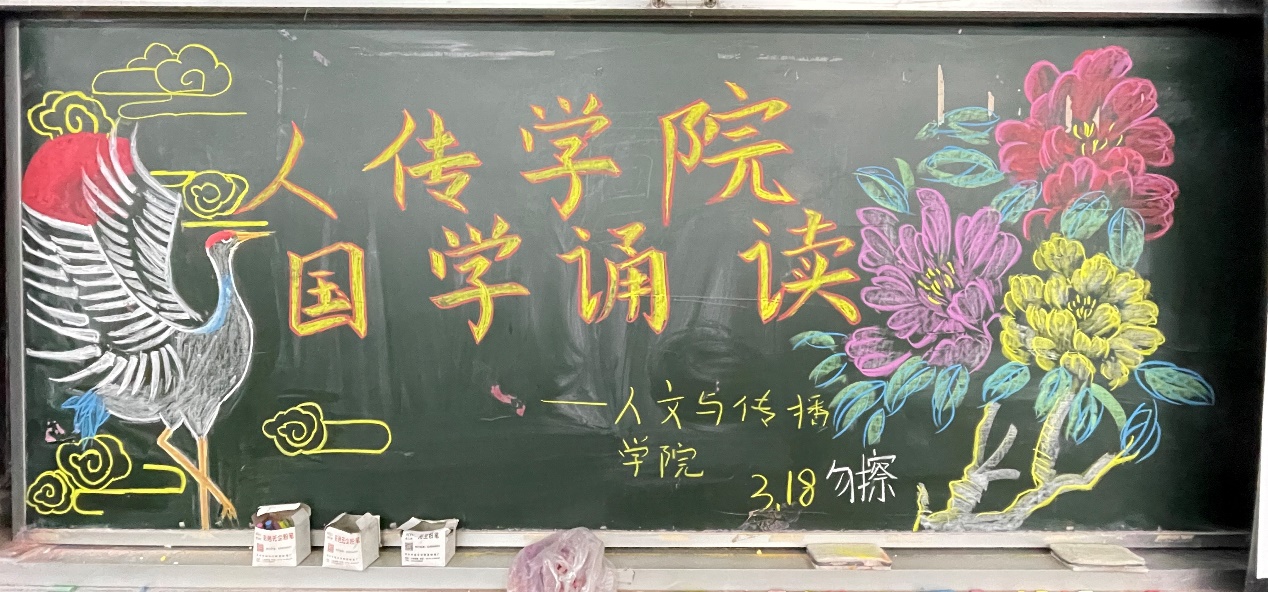 人传学院
国学诵读
——人文与传播
学院
3.18 勿擦